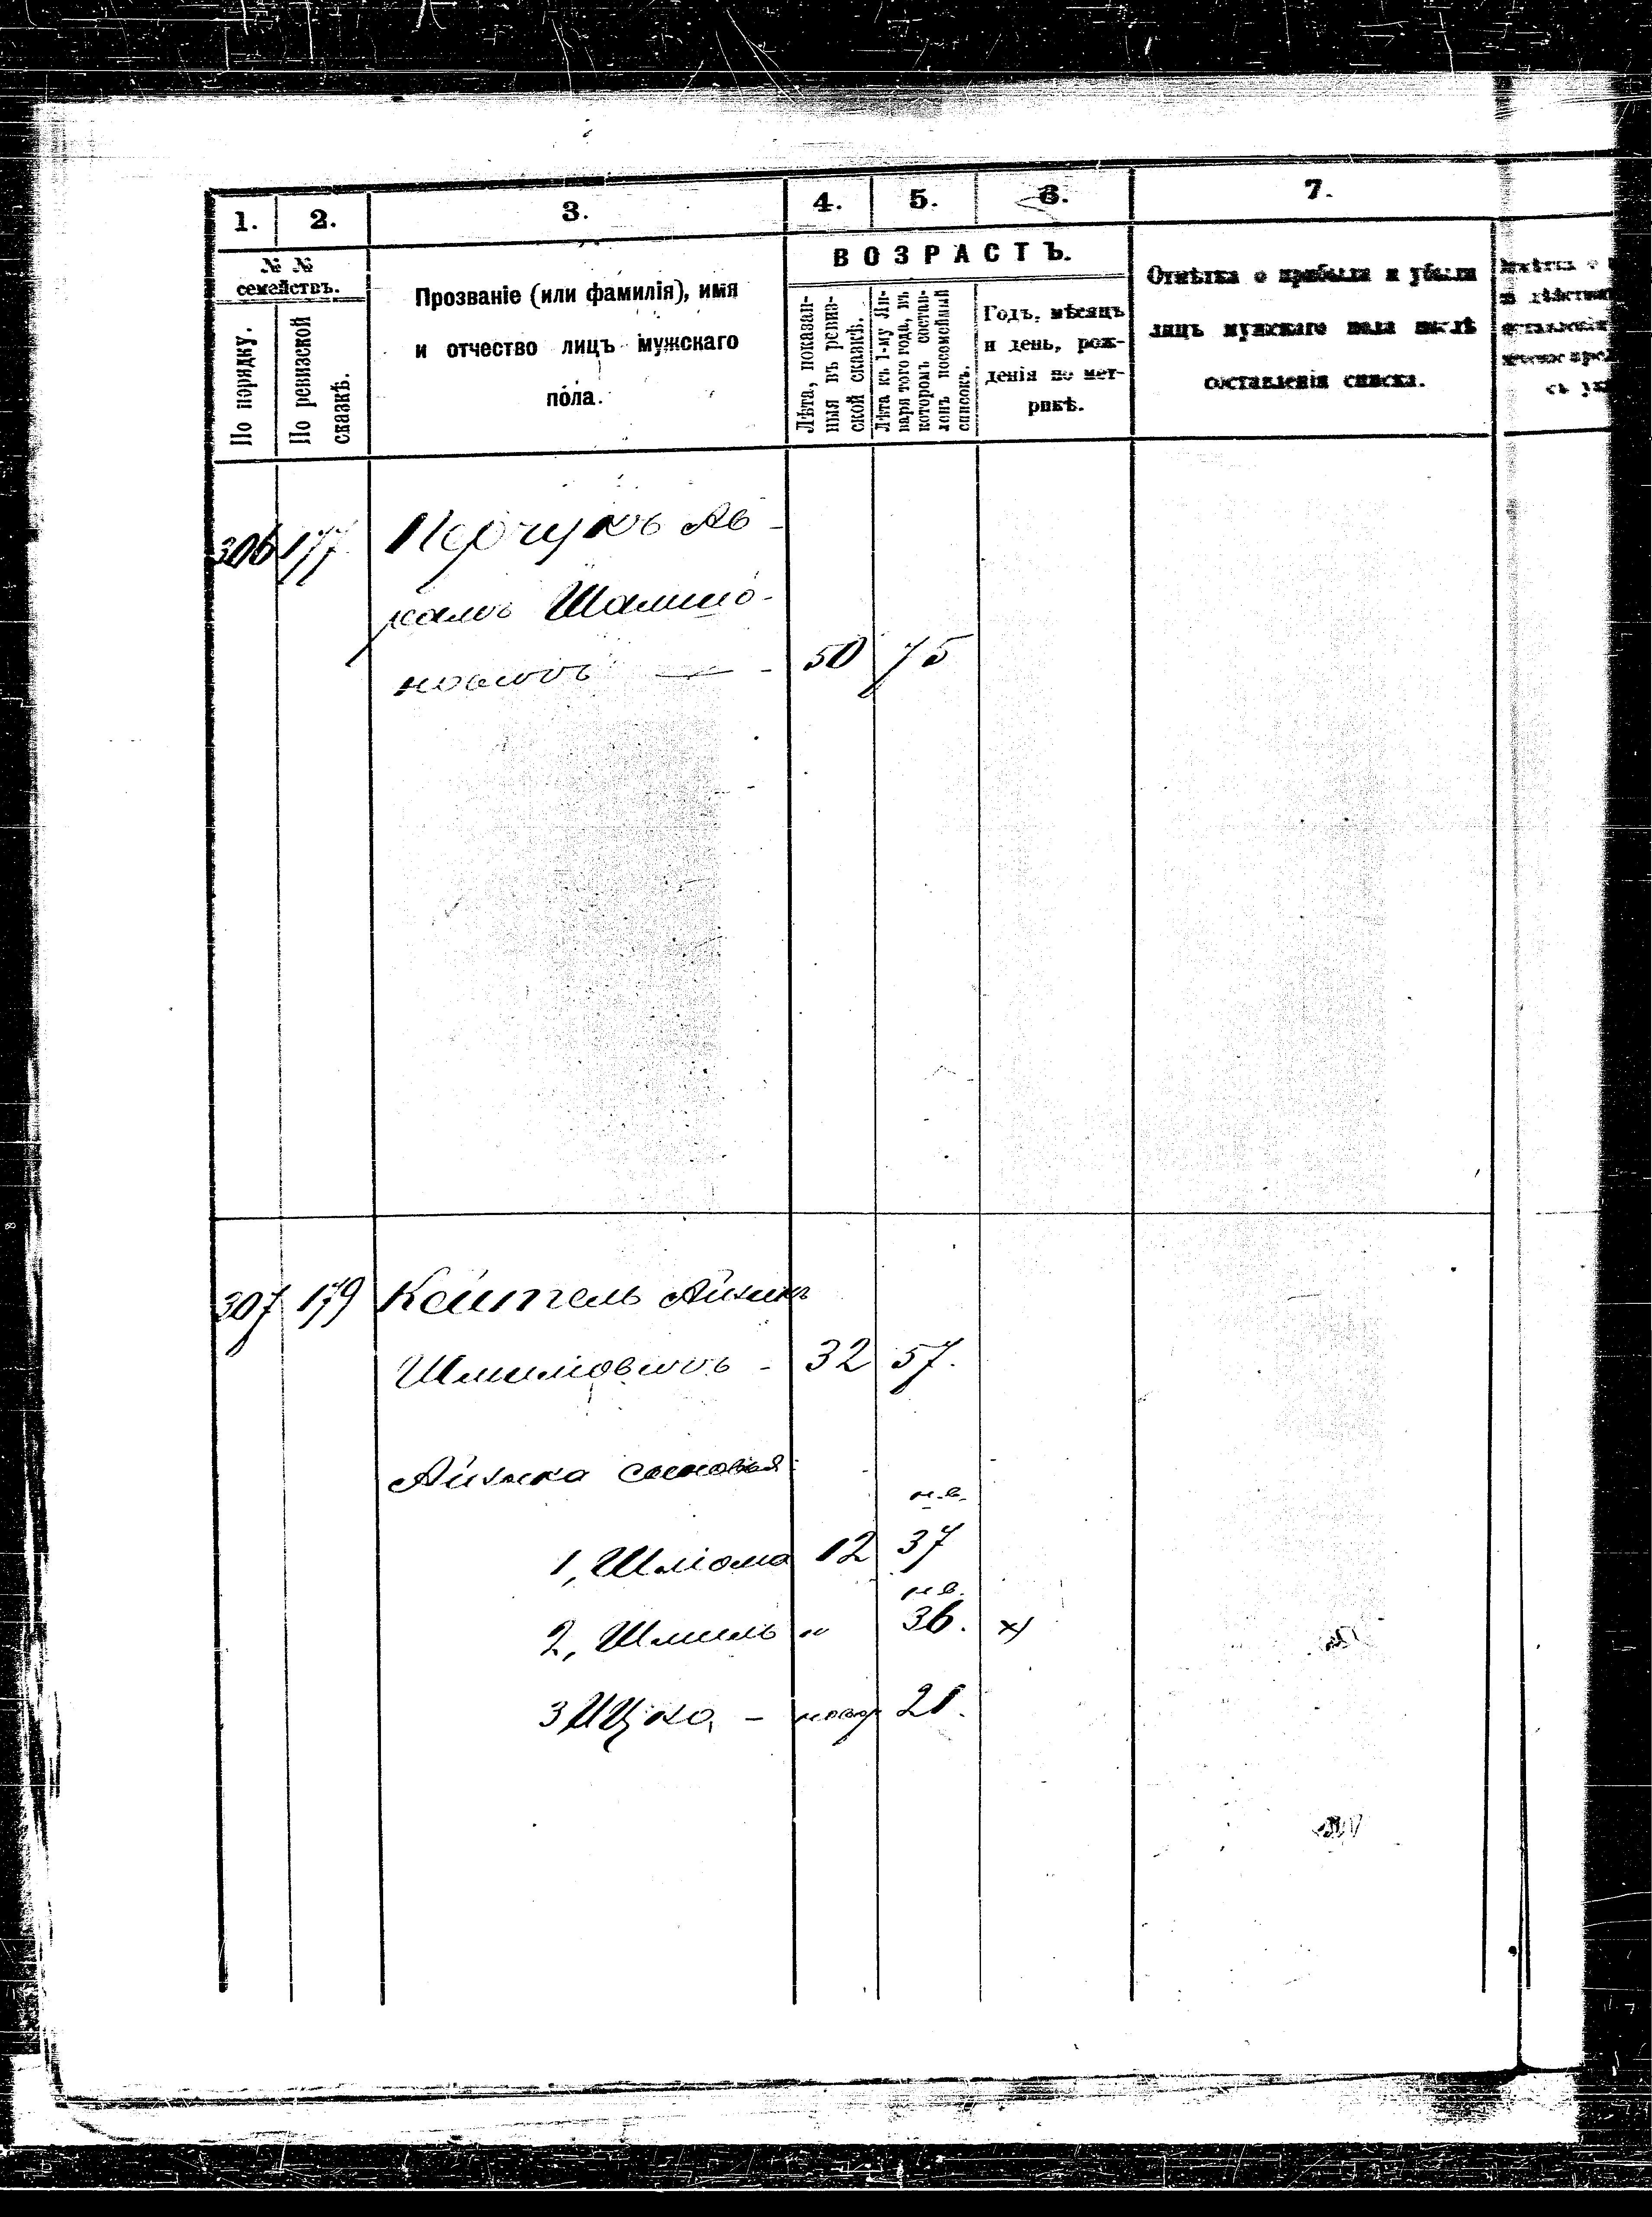 1. 2. 3. 4. 5. 6. 7.
№ №
семействъ.
По порядку.
По ревизской
сказкѣ.
Прозваніе (или фамилія), имя
и отчество лицъ мужскаго
пола.
ВОЗРАСТЪ.
Лѣта, показан-
ныя въ ревиз-
ской сказкѣ.
Лѣта къ 1-му Ян-
варя того года, въ
которомъ состав-
ленъ посемейный
списокъ.
Годъ, мѣсяцъ
и день, рож-
денія по мет-
рикѣ.
Отмѣтка о прибыли и убыли
лицъ мужскаго пола послѣ
составленія списка.
306 177 Ав-
рамъ
50 75
307 179 Кейтель Айзикъ
Шлиомовичъ - 32 57.
Айзика сыновья:
н.в.
1, Шлiома 12 37
н.в.
2, Шмиль " 36. х)
3 Ицко, - новор 21.